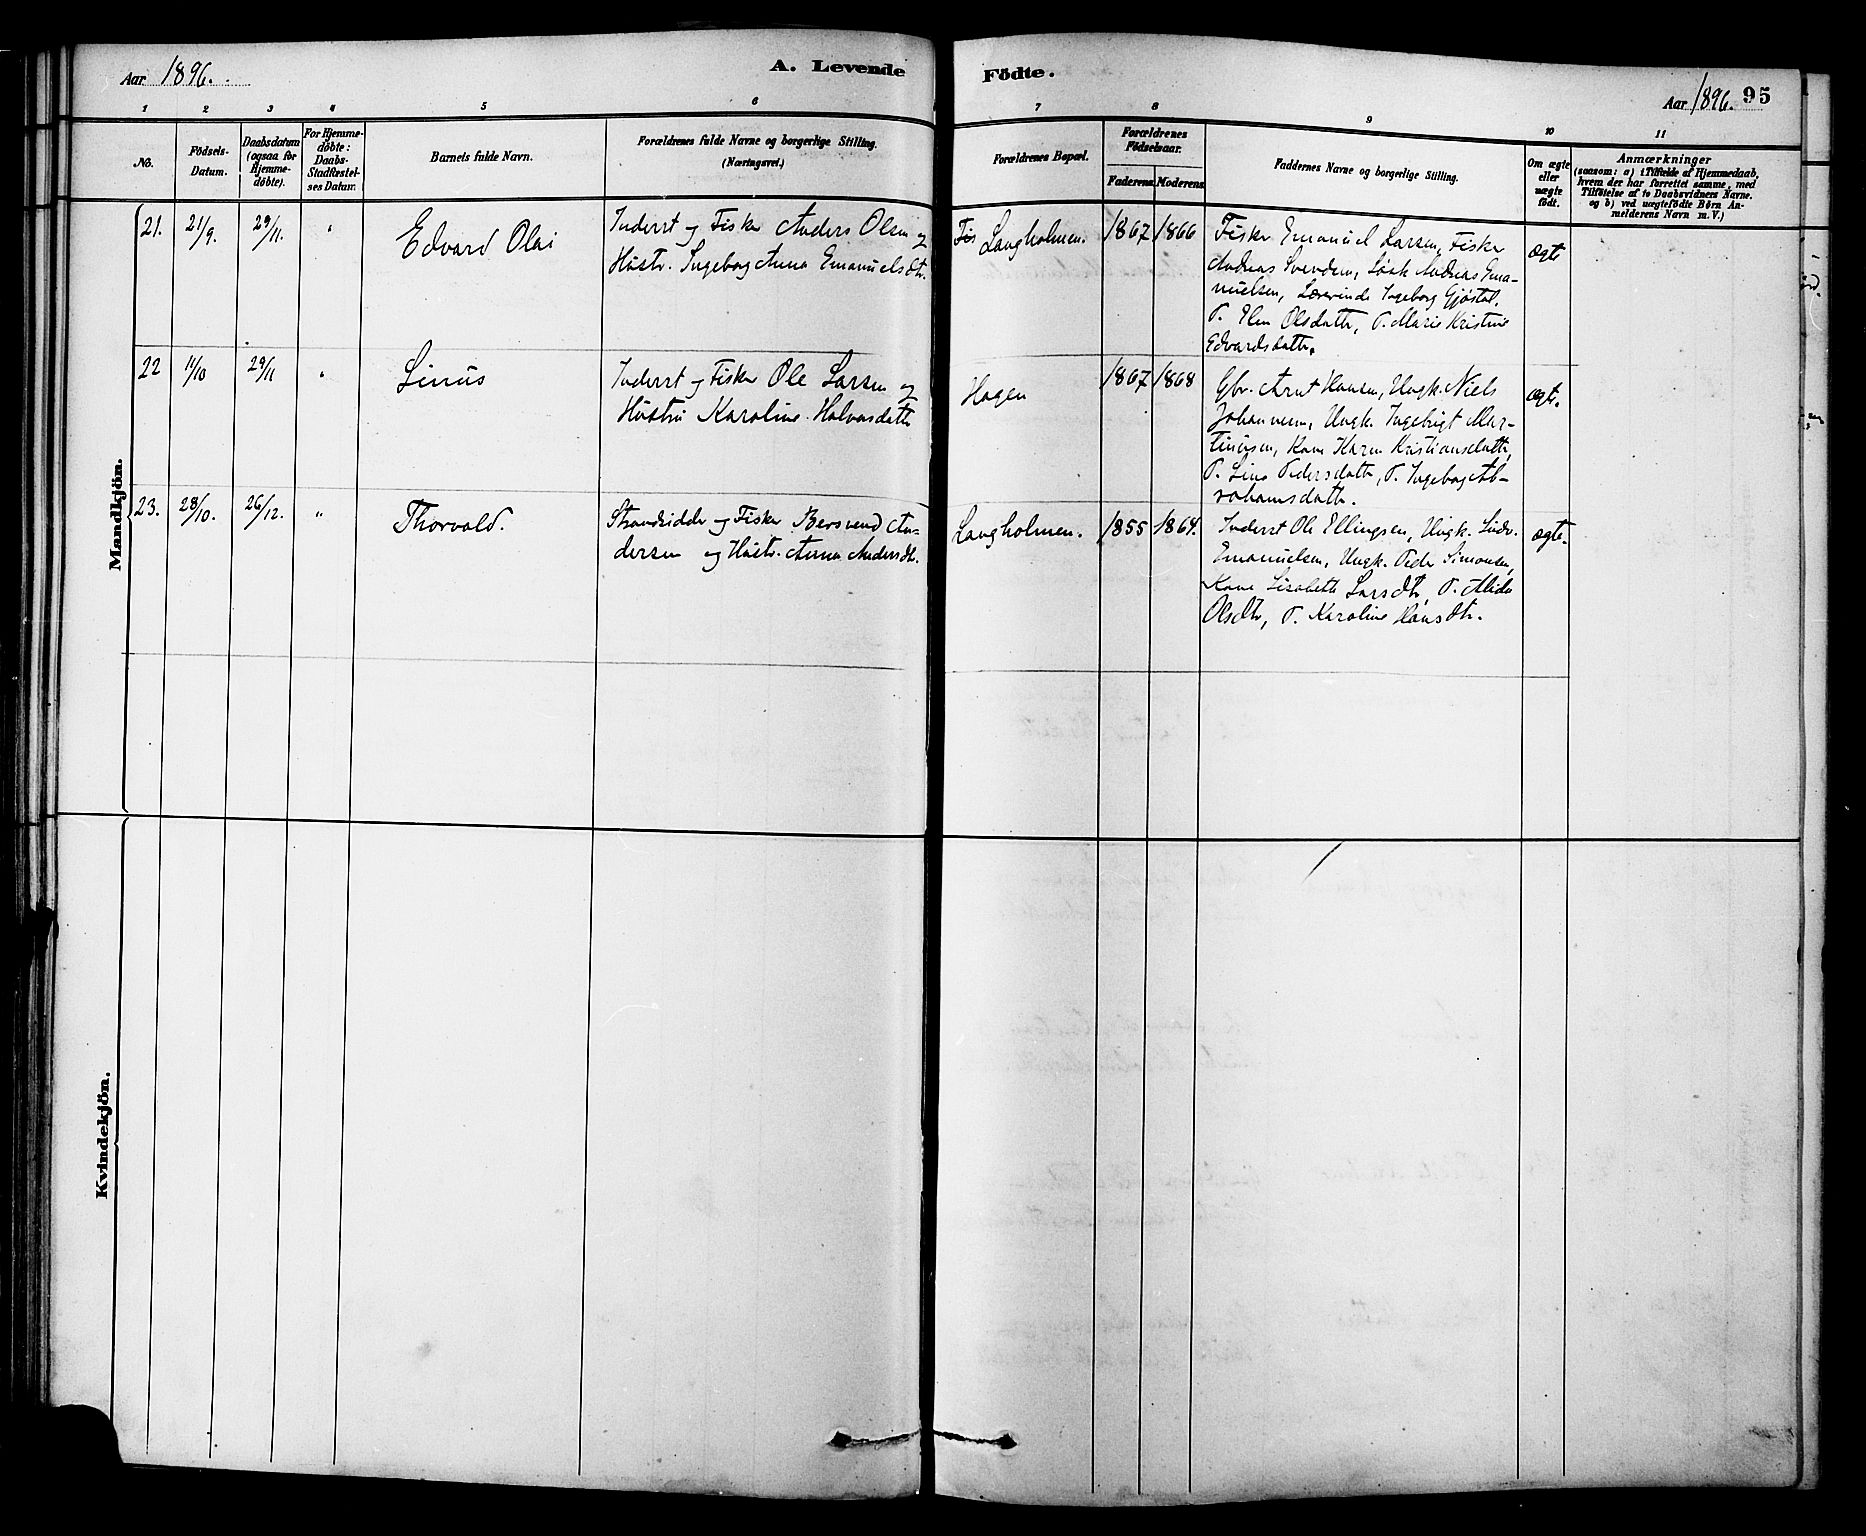 Aar 1896.
A. Levende
Födte.
Aar 1896.
95
1 2 3 4 5 6 7 8 9 10 11
No.
Födsels-
Datum.
Daabsdatum
(ogsaa for
Hjemme-
döbte).
For Hjemme-
döbte:
Daabs-
Stadfæstel-
ses Datum.
Barnets fulde Navn.
Forældrenes fulde Navne og borgerlige Stilling.
(Næringsvei.)
Forældrenes Bopæl.
Forældrenes
Födselsaar.
Faderens. Moderens.
Faddernes Navne og borgerlige Stilling.
Om ægte
eller
uægte
födt.
Anmærkninger
(saasom: a) i Tilfælde af Hjemmedaab,
hvem der har forrettet samme, med
Tilföielse af to Daabsvidners Navne.
og b) ved uægtefödte Börn An-
melderens Navn m. V.)
Mandkjön.
21. 21/9. 29/11. "
Edvard Olai
Inderst og Fisker Anders Olsen og
Hustr. Ingeborg Anna Emanuelsdtr.
Langholmen.
1867 1866
Fisker Emanuel Larsen, Fisker
Andreas Svendsen, Andreas Ema-
nuelsen, Lærerinde Ingeborg Gjøstøl.
P. Elen Olsdatter, P. Marie Kristine
Edvardsdatter.
ægte
22 11/10 29/11 "
Linus
Inderst og Fisker Ole Larsen og
Hustru Karoline Halvorsdatter
Hagen
1867 1868
Gbr. Arnt Hansen, Ungk. Niels
Johannesen, Ungk. Ingebrigt Mar-
tinusen, Kone Karen Kristiansdatter,
P. Lina Pedersdatter, P. Ingeborg Ab-
rahamsdatter.
ægte.
23. 28/10. 26/12. "
Thorvald.
Strandsidder og Fisker Bersvend An-
dersen og Hustr. Anna Andersdtr.
Langholmen.
1855 1864.
Inderst Ole Ellingsen, Ungk. Ludv.
Emanuelsen, Ungk. Peder Simonsen,
Kone Lisabeth Larsdtr, P. Alida
Olsdtr, P. Karoline Hansdtr.
ægte.
Kvindekjön.